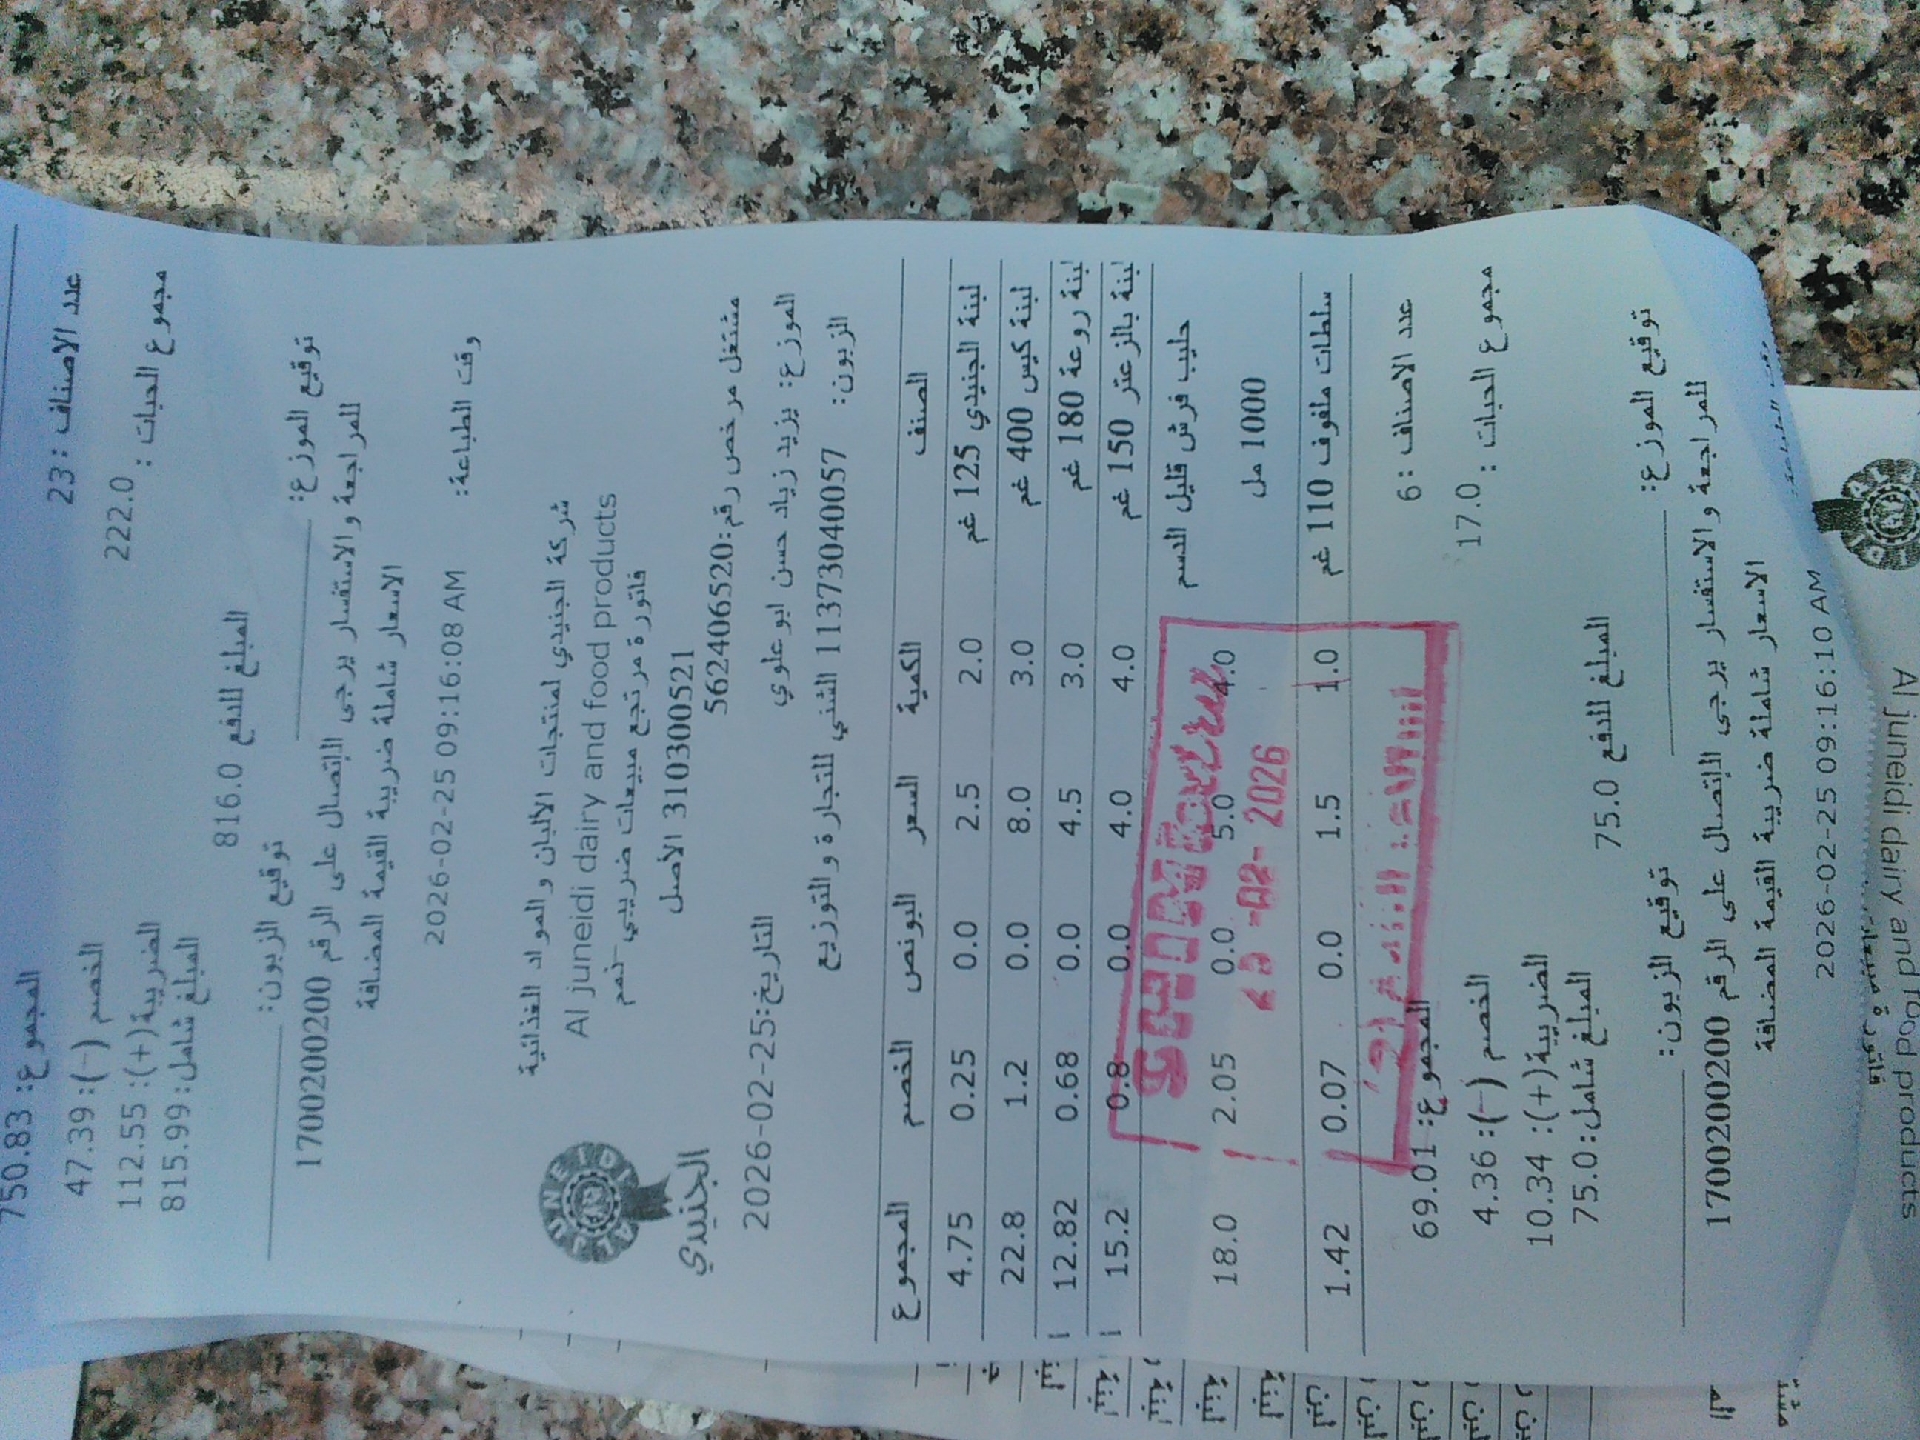 المجموع: 750.83
عدد الاصناف : 23
الخصم (-): 47.39
مجموع الحبات : 222.0
الضريبة(+): 112.55
المبلغ شامل: 815.99
المبلغ للدفع 816.0
توقيع الموزع:
توقيع الزبون:
للمراجعة والاستفسار يرجى الاتصال على الرقم 1700200200
الاسعار شاملة ضريبة القيمة المضافة
وقت الطباعة: 2026-02-25 09:16:08 AM
شركة الجنيدي لمنتجات الالبان والمواد الغذائية
Al juneidi dairy and food products
فاتورة مرتجع مبيعات ضريبي-نعم
310300521 الاصل
AL JUNEIDI
الجنيدي
مشتغل مرخص رقم:562406520
الموزع: يزيد زياد حسن ابو علوي
التاريخ:2026-02-25
الزبون: 11373040057 الشني للتجارة والتوزيع
الصنف الكمية السعر البونص الخصم المجموع
لبنة الجنيدي 125 غم 2.0 2.5 0.0 0.25 4.75
لبنة كيس 400 غم 3.0 8.0 0.0 1.2 22.8
لبنة روعة 180 غم 3.0 4.5 0.0 0.68 12.82
لبنة بالزعتر 150 غم 4.0 4.0 0.0 0.8 15.2
حليب فرش قليل الدسم
1000 مل 4.0 5.0 0.0 2.05 18.0
-02- 2026
سلطات ملفوف 110 غم 1.0 1.5 0.0 0.07 1.42
عدد الاصناف : 6
المجموع: 69.01
مجموع الحبات : 17.0
الخصم (-): 4.36
الضريبة(+): 10.34
المبلغ شامل: 75.0
المبلغ للدفع 75.0
توقيع الموزع:
توقيع الزبون:
للمراجعة والاستفسار يرجى الاتصال على الرقم 1700200200
الاسعار شاملة ضريبة القيمة المضافة
2026-02-25 09:16:10 AM
Al juneidi dairy and food products